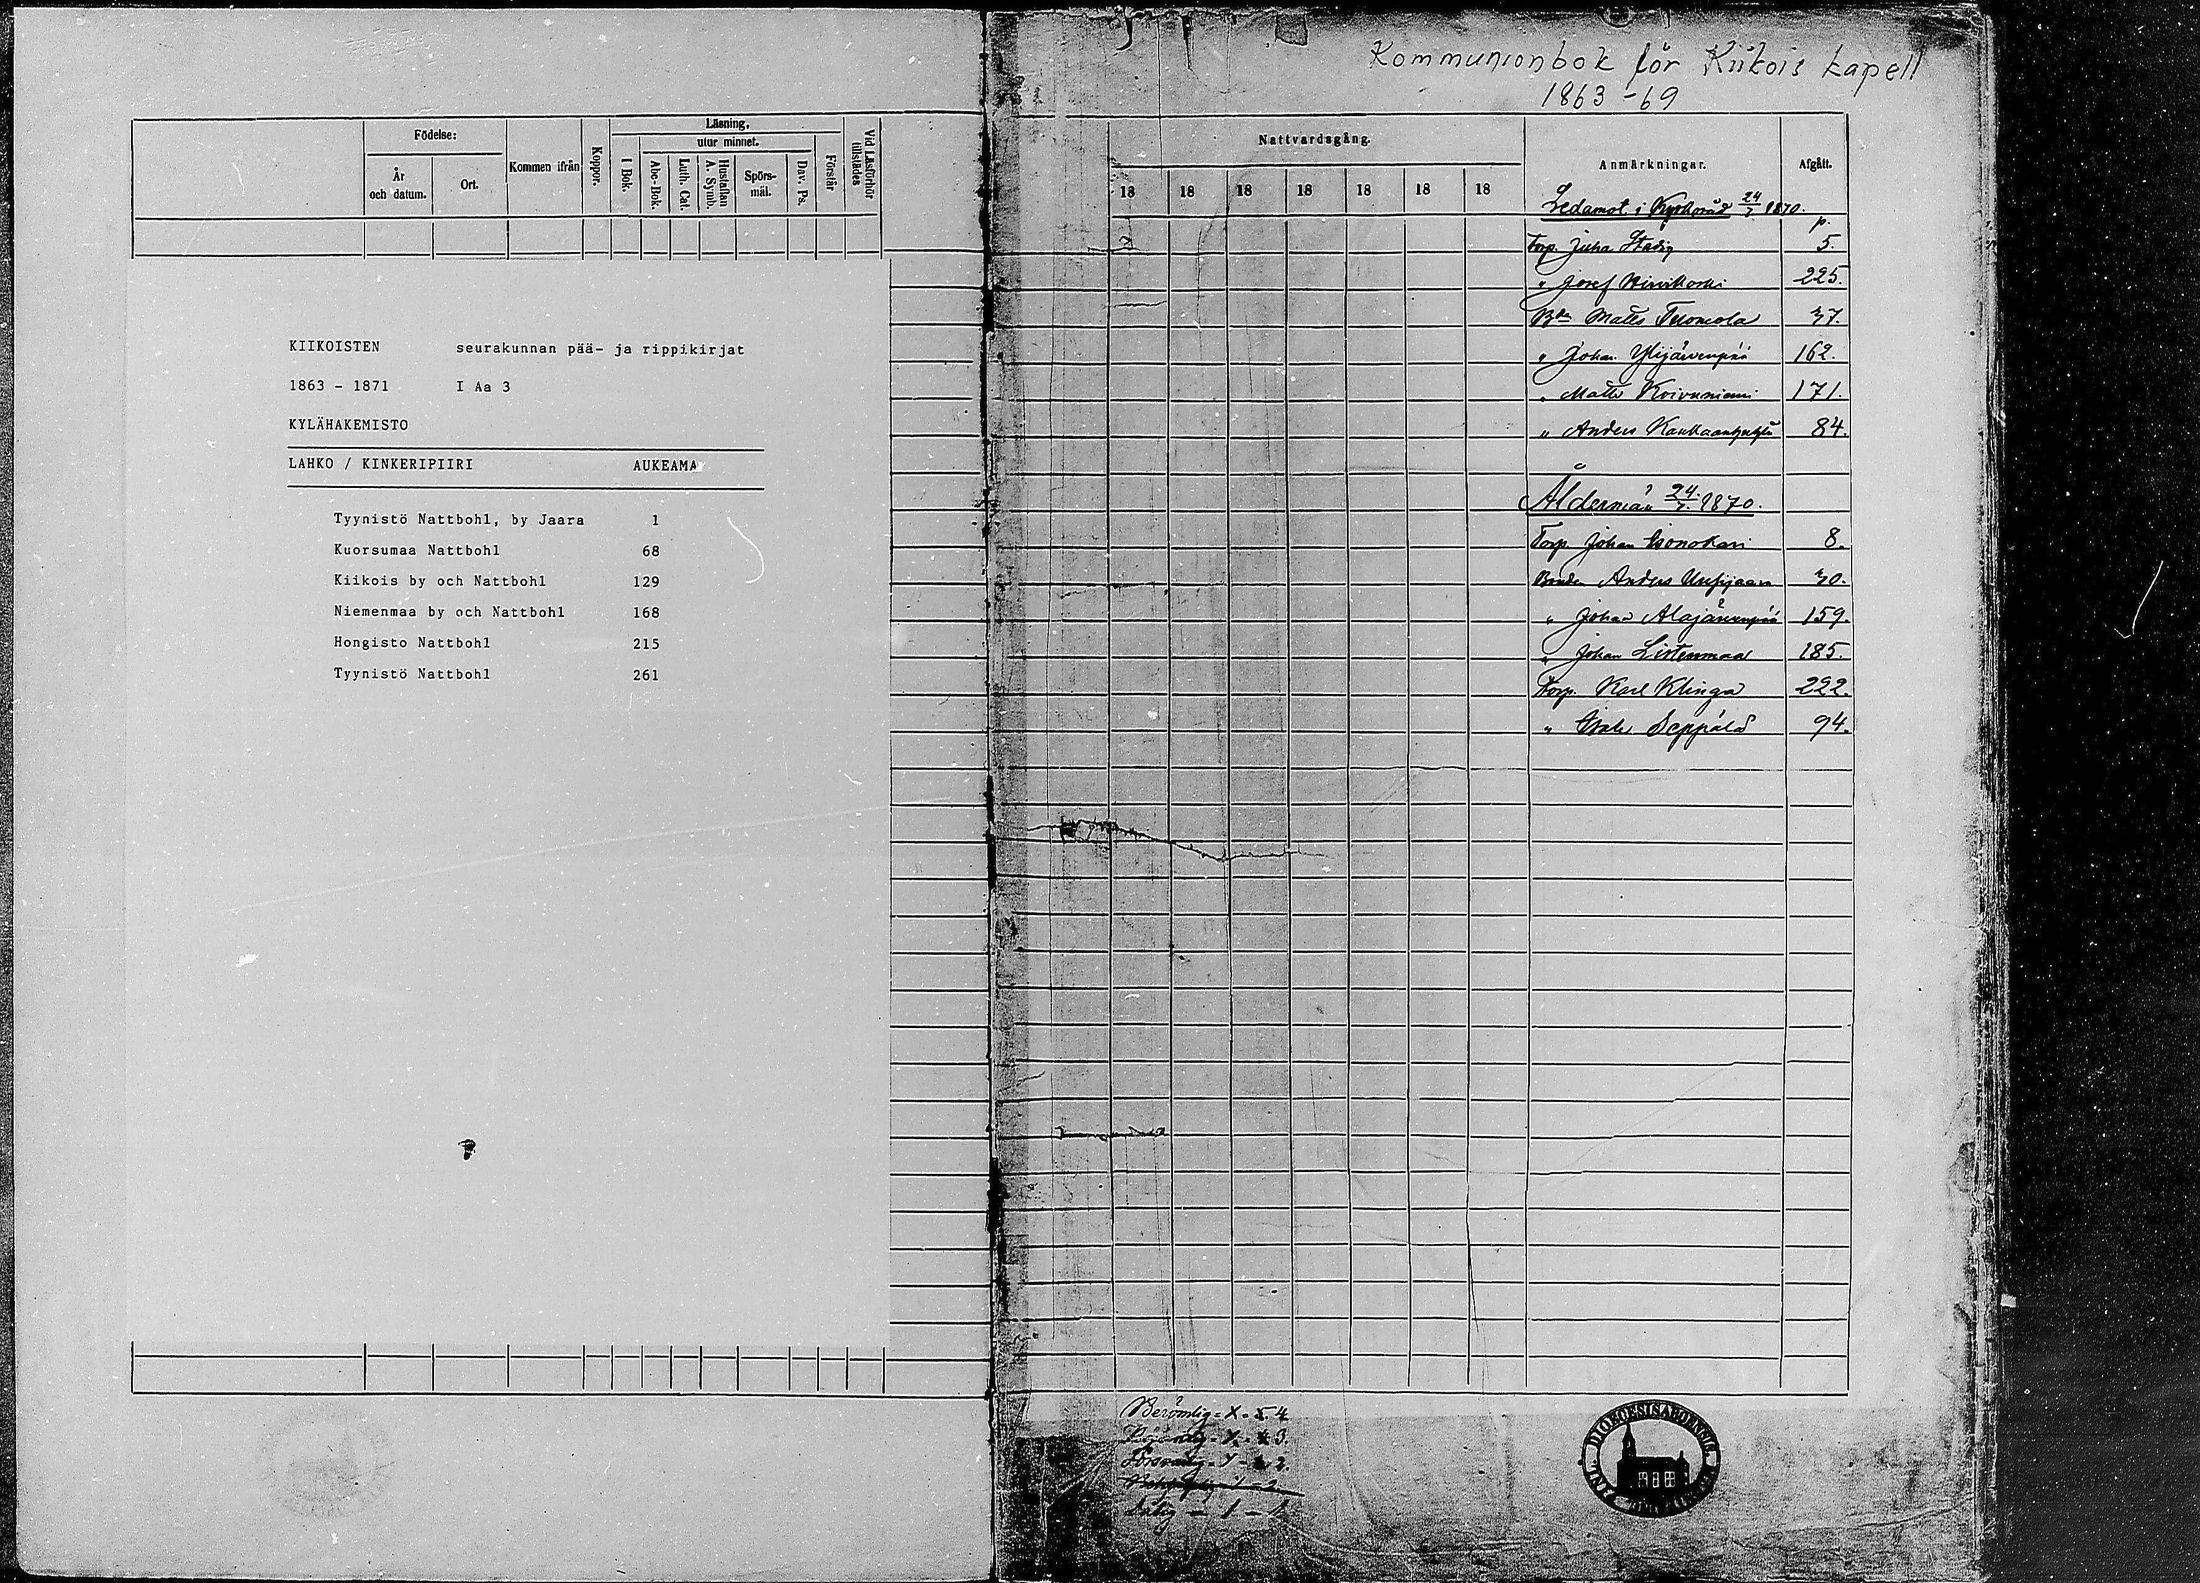 Kommunionbok för Kiikois kapell
1863-69
Födelse:
År
och datum.
Ort.
Kommen ifrån
Koppor.
Läsning,
utur minnet.
I Bok.
Abc-Bok.
Luth. Cat.
Hustaflan
A. Symb.
Spörs-
mål.
Dav. Ps.
Förstår
Vid Läsförhör
tillstädes
KIIKOISTEN seurakunnan pää- ja rippikirjat
1863 - 1871 I Aa 3
KYLÄHAKEMISTO
LAHKO / KINKERIPIIRI AUKEAMA
Tyynistö Nattbohl, by Jaara 1
Kuorsumaa Nattbohl 68
Kiikois by och Nattbohl 129
Niemenmaa by och Nattbohl 168
Hongisto Nattbohl 215
Tyynistö Nattbohl 261
Nattvardsgång.
18 18 18 18 18 18 18
Anmärkningar.
Afgått.
Ledamot. i Kyrkoråd 24/7 1870.
p.
Torp. Juha Stadig 5.
" Josef Hirvikoski 225.
Bdn Matts Tuomola 37.
" Johan Ylijärvenpää 162.
" Matts Koivuniemi 171.
" Anders 84.
Åldermän 24/7. 1870.
Torp. Johan Isonokari 8.
Bonden Anders Uusijaara 30.
" Johan Alajärvenpää 159.
" Johan Listenmaa 185.
Torp. Karl Klinga 222.
" Isak Seppälä 94.
Berömlig = X = 4
3.
Försvarlig - 2.
Dålig - 1 - 1.